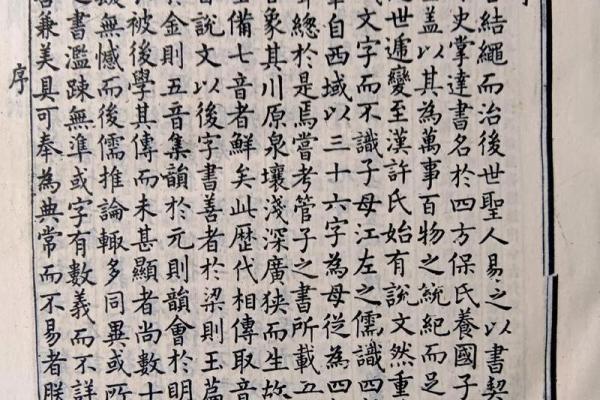 結繩而治後世聖人易之以書契
史掌達書名於四方保氏養國子
蓋以其為萬事百物之統紀而足
世遞變至漢許氏始有說文然重
文字而不識子母江左之儒識四
自西域以三十六字為母從為四
聲總於是焉嘗考管子之書所載五
象其川原泉壤淺深廣狹而生故
備七音者鮮矣此歴代相傳取音
說文以後字書善者於梁則玉篇
金則五音集韻於元則韻會於明
被後學其傳而未甚顯者尚數十
無憾而後儒推論輒多同異或所
之書濫踈無準或字有數義而不詳
兼美具可奉為典常而不易者朕
序